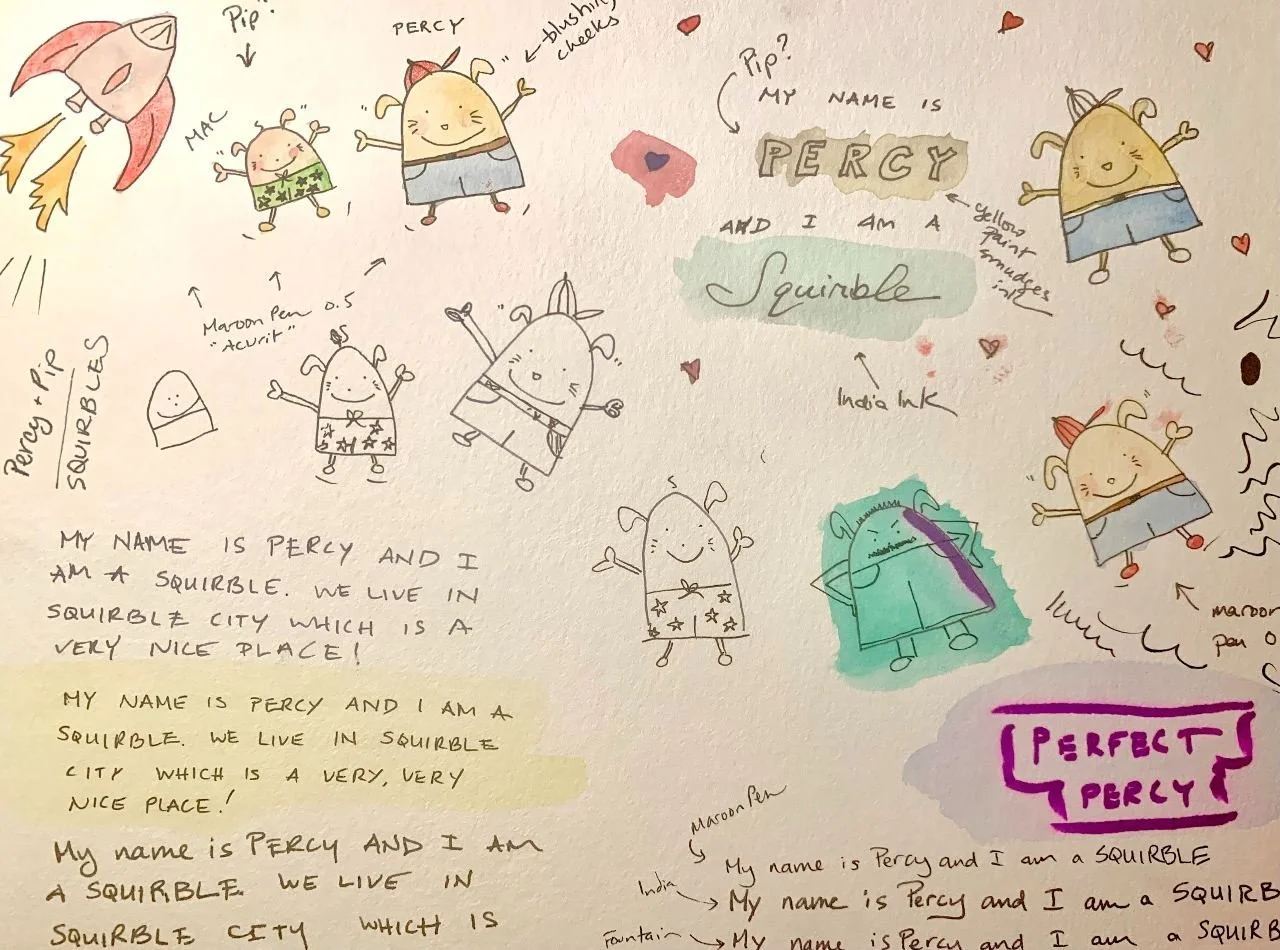 Pip"
PERCY
blushing
cheeks
MAC
Maroon Pen 0.5
"Acurit"
Percy + Pip
SQUIRBLES
Pip?
MY NAME IS
PERCY
AND I AM A
Squirble
yellow
paint
smudges
ink
India Ink
maroon
pen 0
MY NAME IS PERCY AND I
AM A SQUIRBLE. WE LIVE IN
SQUIRBLE CITY WHICH IS A
VERY NICE PLACE!
MY NAME IS PERCY AND I AM A
SQUIRBLE. WE LIVE IN SQUIRBLE
CITY WHICH IS A VERY, VERY
NICE PLACE!
My name is PERCY AND I AM
A SQUIRBLE. WE LIVE IN
SQUIRBLE CITY WHICH IS
PERFECT
PERCY
Maroon Pen
My name is Percy and I am a SQUIRBLE
India
My name is Percy and I am a SQUIRB
Fountain
My name is Percy and I am a SQUIRB